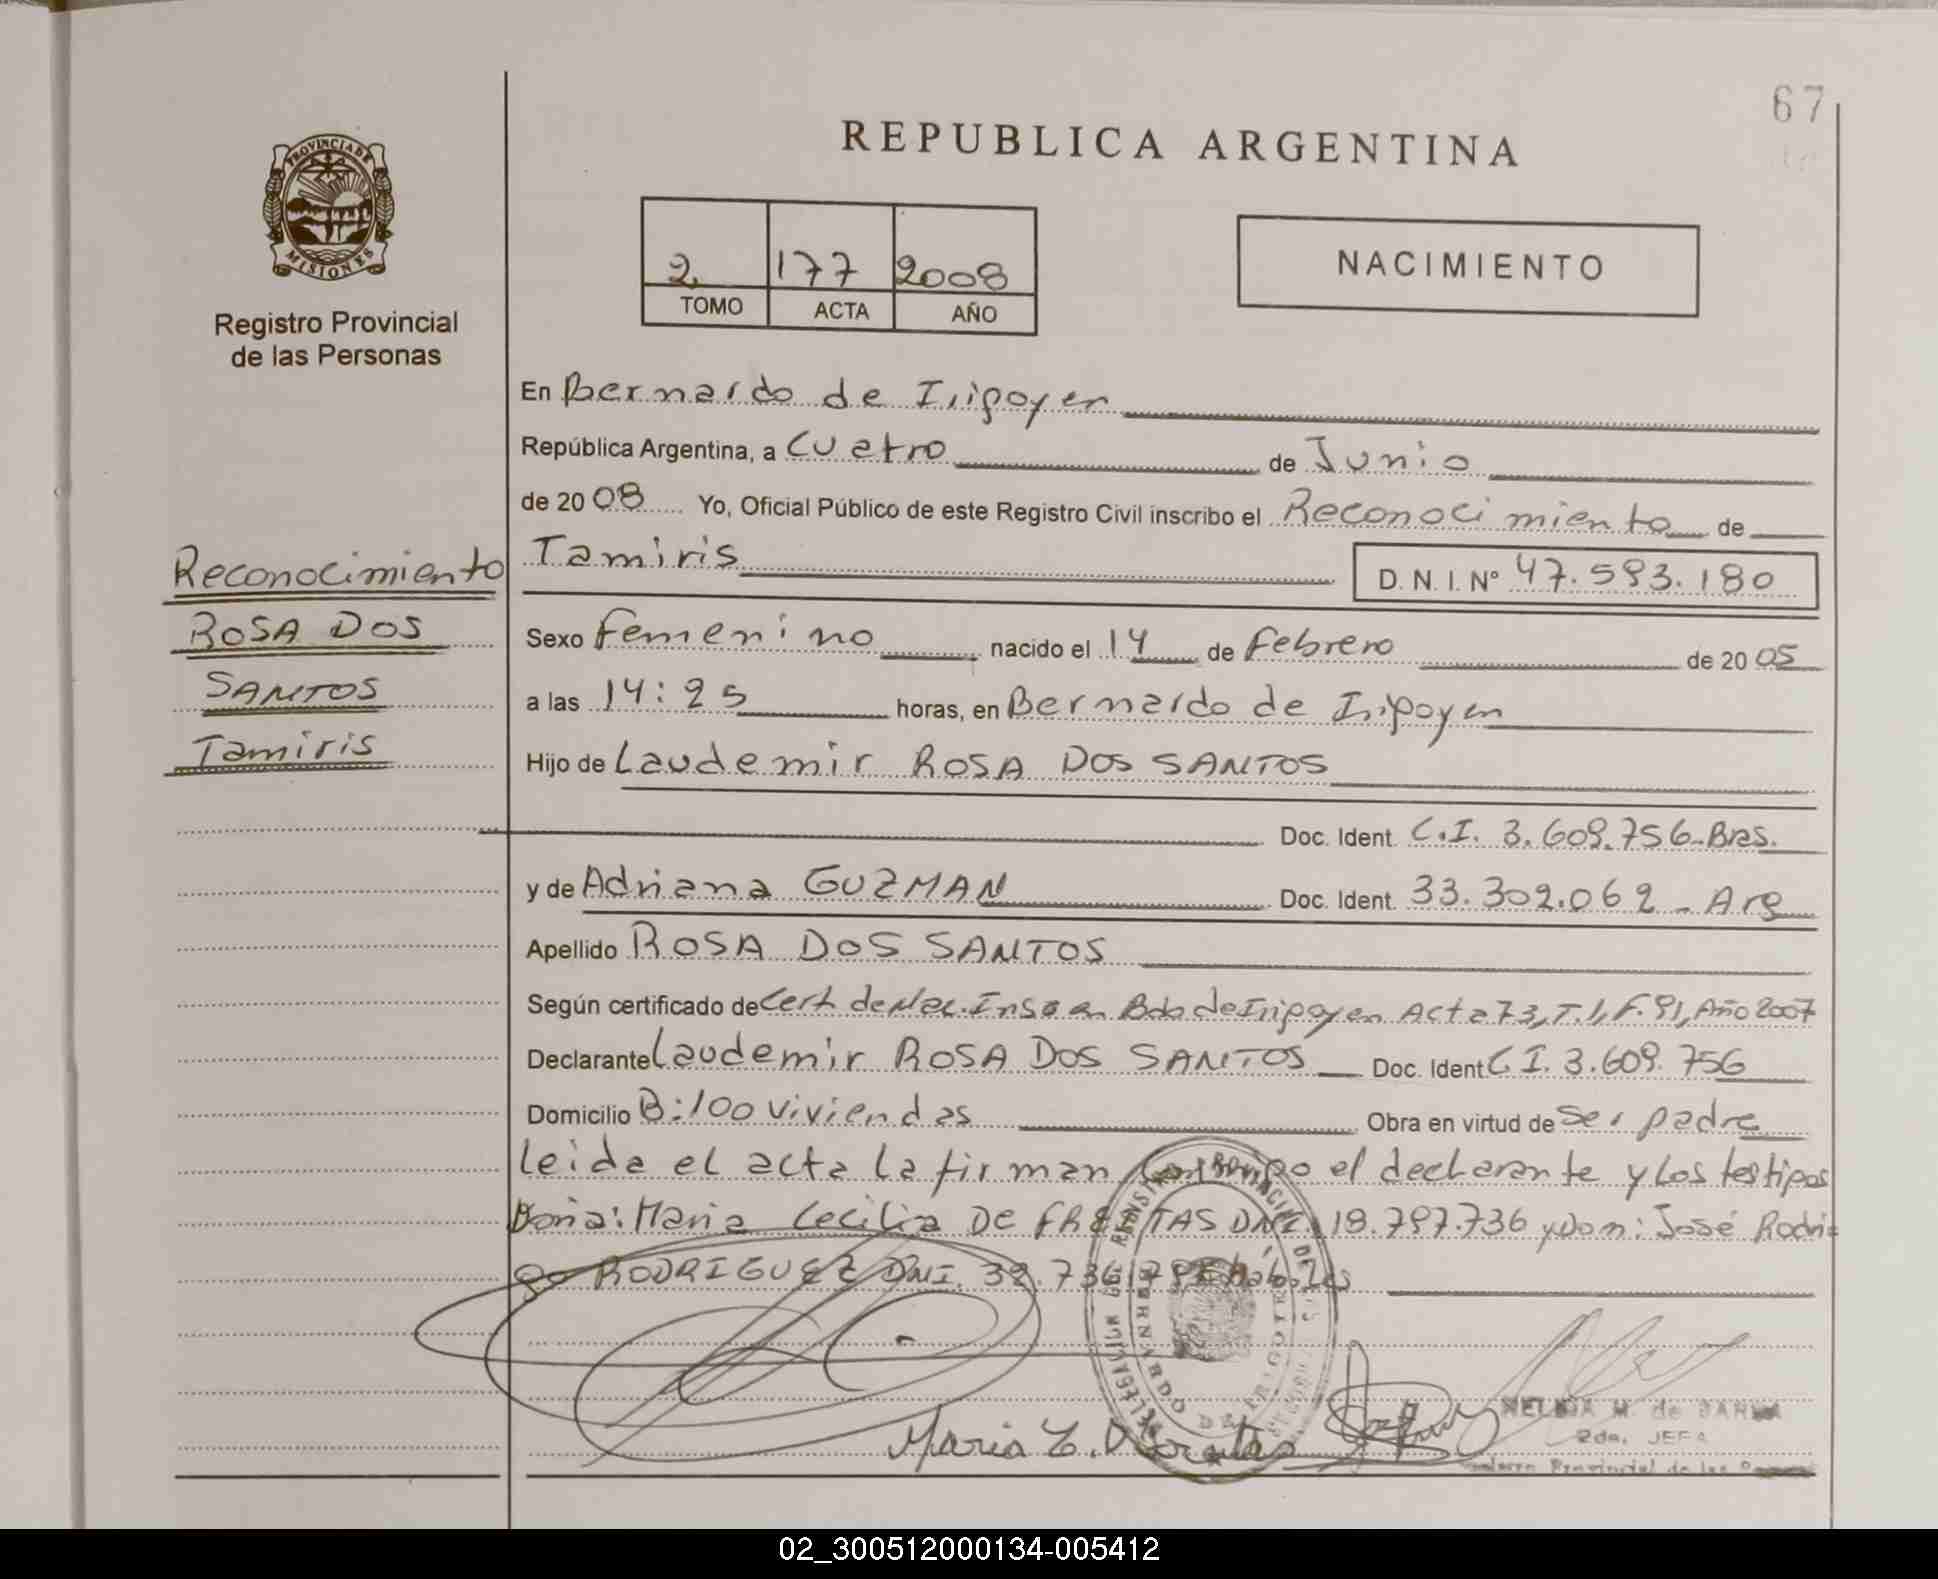 67
REPUBLICA ARGENTINA
PROVINCIA DE
MISIONES
Registro Provincial
de las Personas
2 177 2008
TOMO ACTA AÑO
NACIMIENTO
En Bernardo de Irigoyen
República Argentina, a Cuatro de Junio
de 2008 Yo, Oficial Público de este Registro Civil inscribo el Reconocimiento de
Tamiris D.N.I. Nº 47.593.180
Reconocimiento
ROSA DOS
SANTOS
Tamiris
Sexo Femenino nacido el 14 de Febrero de 2005
a las 14:25 horas, en Bernardo de Irigoyen
Hijo de Laudemir ROSA DOS SANTOS
Doc. Ident. C.I. 3.609.756-Bras.
y de Adriana GUZMAN Doc. Ident. 33.302.062 - Arg
Apellido ROSA DOS SANTOS
Según certificado de Cert. de Nac. Insc en Bdo de Irigoyen Acta 73, T.1, F. 91, Año 2007
Declarante Laudemir ROSA DOS SANTOS Doc. Ident C I. 3.609.756
Domicilio B: 100 Viviendas Obra en virtud de Ser padre
Leida el acta La firman Conmigo el declarante y Los testigos
Doña: Maria Cecilia DE FREITAS DNI. 18.797.736 y Don: José Rodri-
go RODRIGUEZ DNI. 32.736. hábiles
Maria
NELIDA M. de
2da. JEFA
Provincial de las
02_300512000134-005412